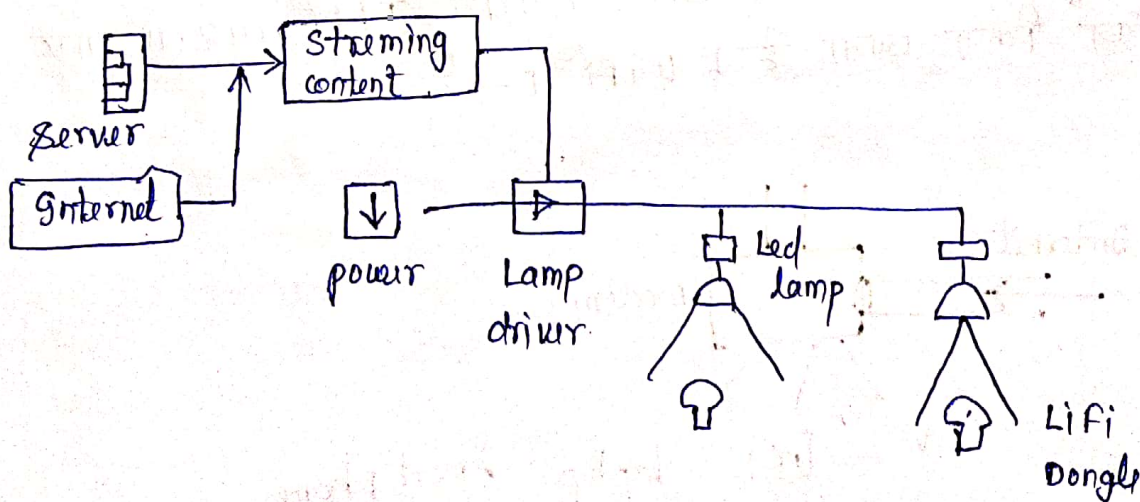 Streming
content
Server
Internet
power
Lamp
driver
Led
lamp
LiFi
Dongle